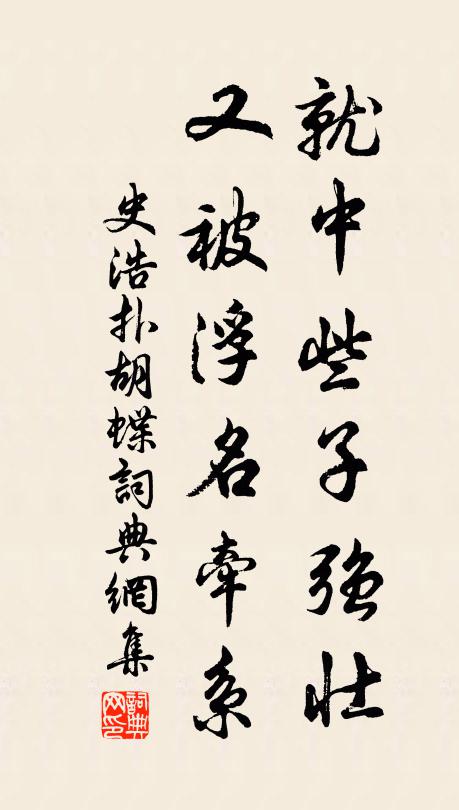 就中些子強壯
又被浮名牽系
史浩扑胡蝶詞典網集
詞典网印